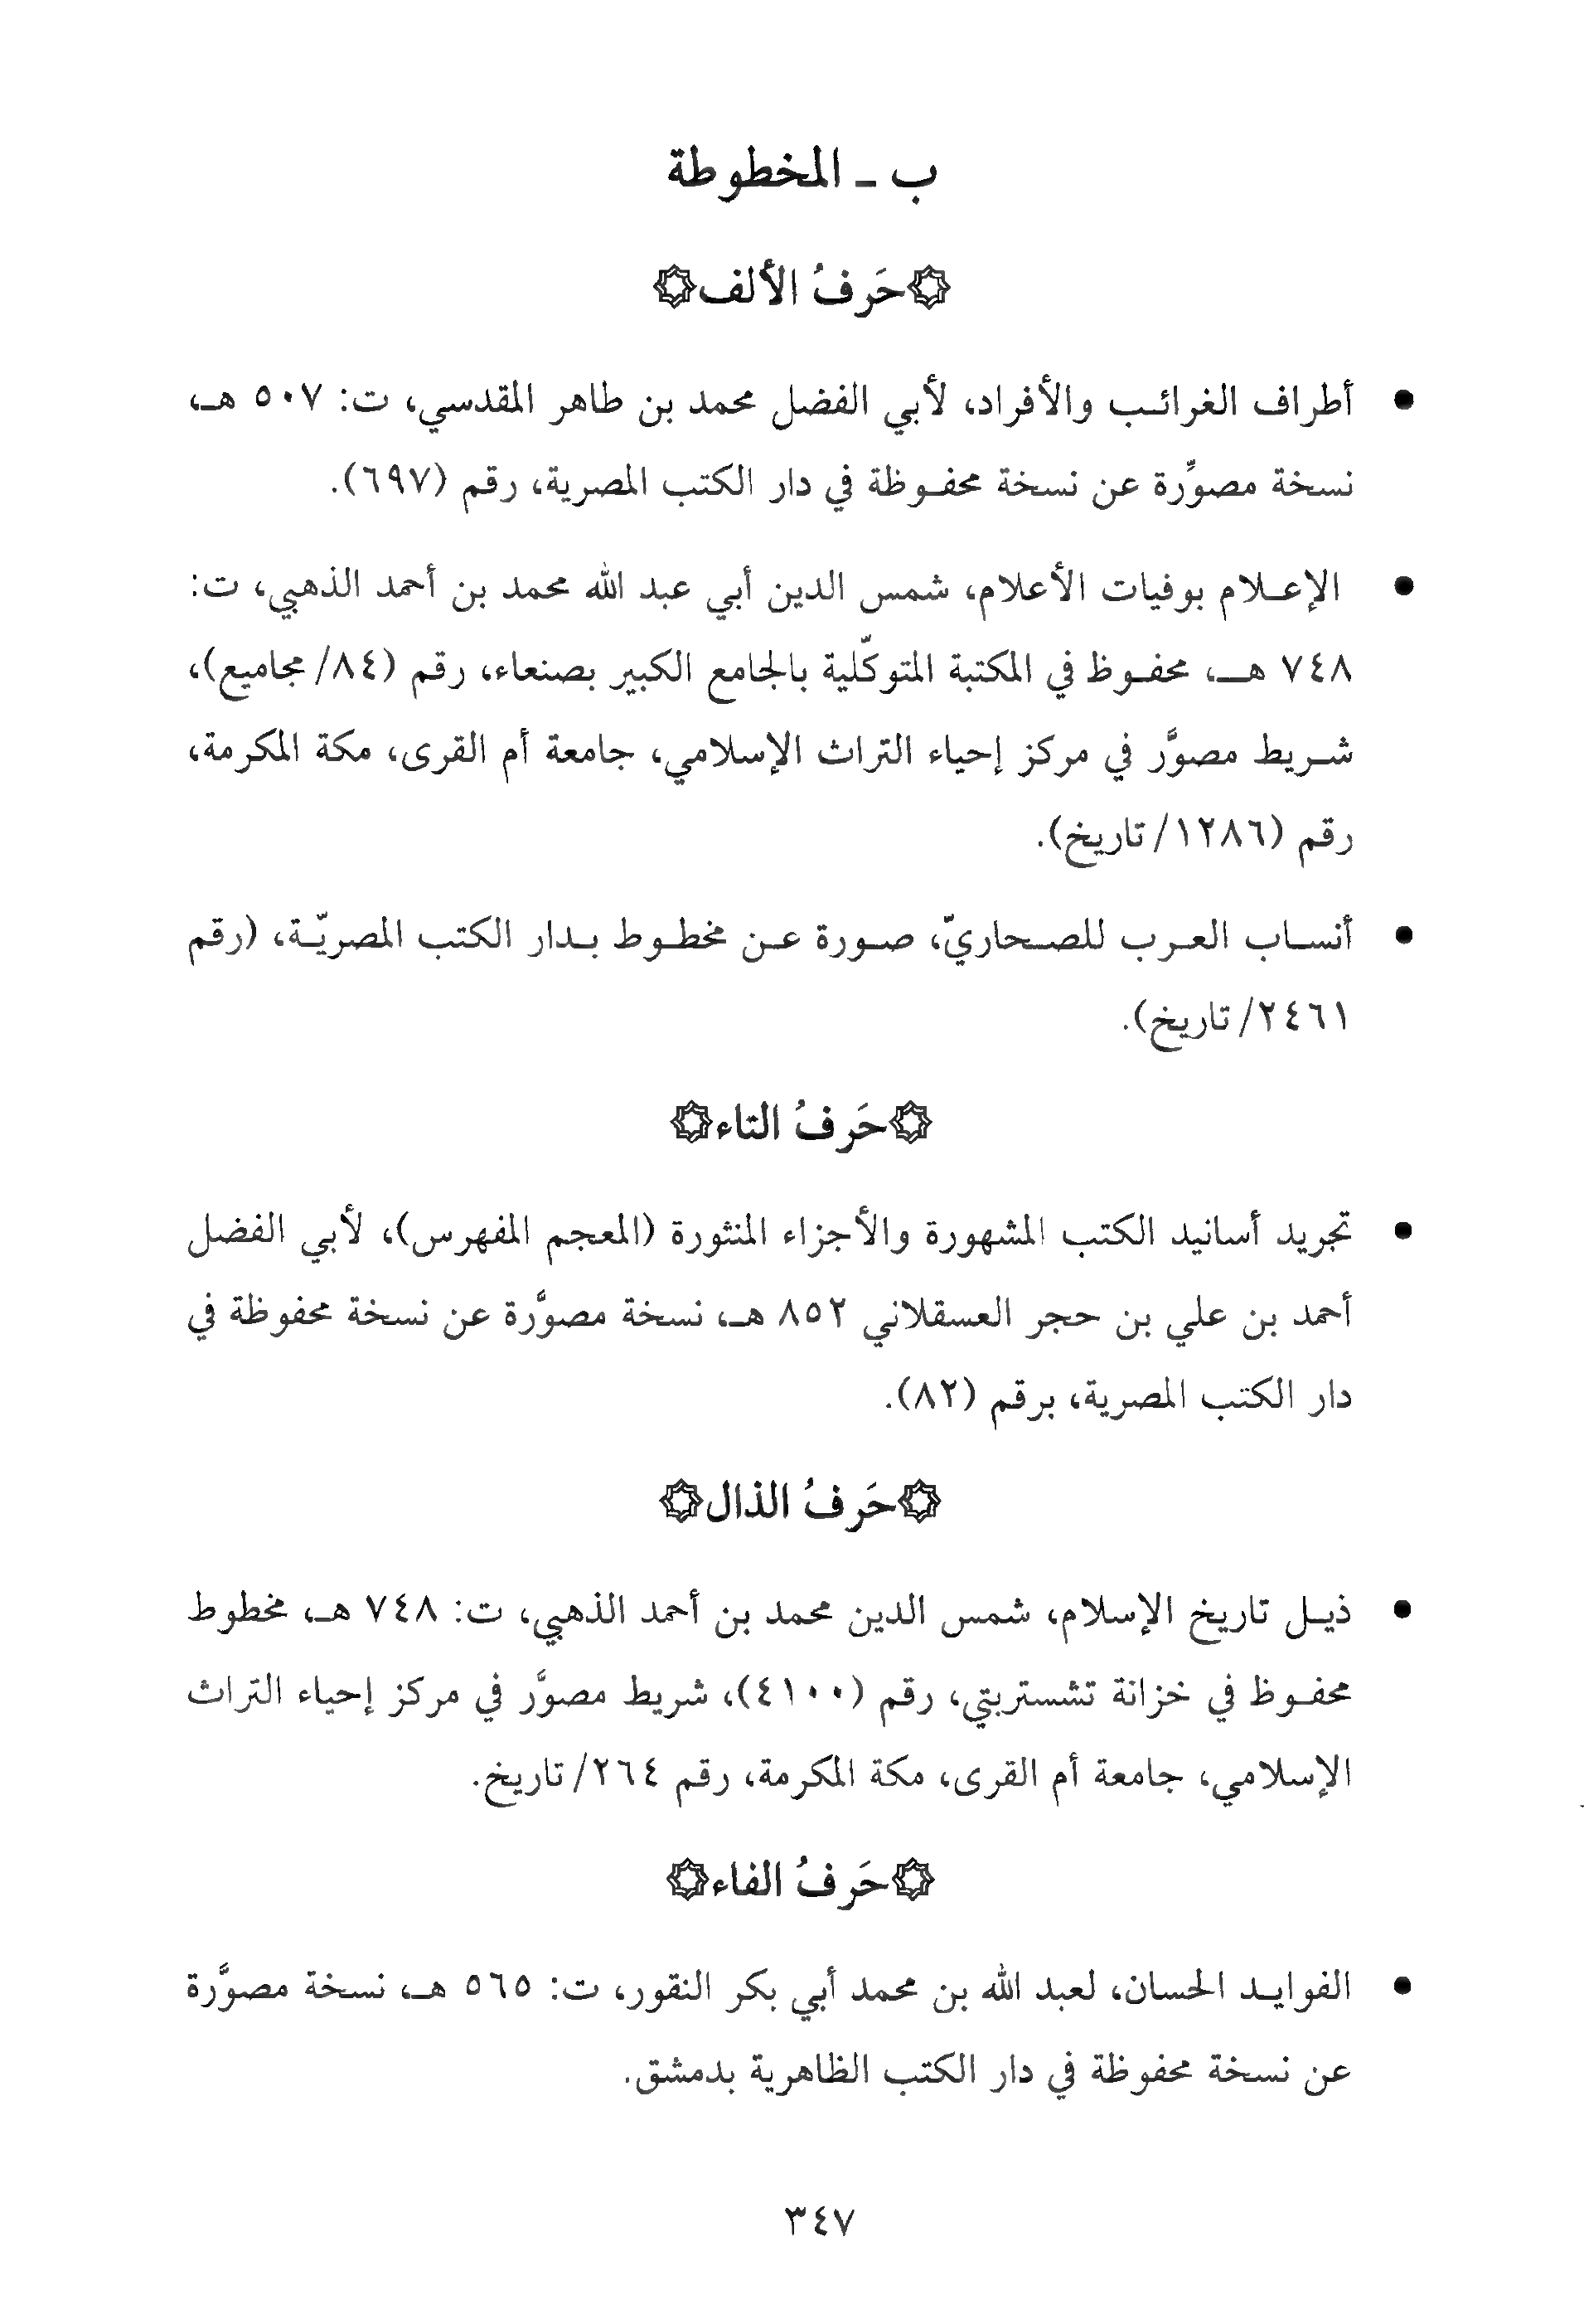 ب ـ المخطوطة
۞حَرفُ الألف۞
• أطراف الغرائـب والأفراد، لأبي الفضل محمد بن طاهر المقدسي، ت: ٥٠٧ هـ،
نسخة مصوِّرة عن نسخة محفـوظة في دار الكتب المصرية، رقم (٦٩٧).
• الإعـلام بوفيات الأعلام، شمس الدين أبي عبد الله محمد بن أحمد الذهبي، ت:
٧٤٨ هــ، محفـوظ في المكتبة المتوكّلية بالجامع الكبير بصنعاء، رقم (٨٤/ مجاميع)،
شـريط مصوَّر في مركز إحياء التراث الإسلامي، جامعة أم القرى، مكة المكرمة،
رقم (١٢٨٦/ تاريخ).
• أنسـاب العـرب للصـحاريّ، صـورة عـن مخطـوط بـدار الكتب المصريّـة، (رقم
٢٤٦١/ تاريخ).
۞حَرفُ التاء۞
• تجريد أسانيد الكتب المشهورة والأجزاء المنثورة (المعجم المفهرس)، لأبي الفضل
أحمد بن علي بن حجر العسقلاني ٨٥٢ هـ، نسخة مصوَّرة عن نسخة محفوظة في
دار الكتب المصرية، برقم (٨٢).
۞حَرفُ الذال۞
• ذيـل تاريخ الإسلام، شمس الدين محمد بن أحمد الذهبي، ت: ٧٤٨ هـ، مخطوط
محفـوظ في خزانة تشستربتي، رقم (٤١٠٠)، شريط مصوَّر في مركز إحياء التراث
الإسلامي، جامعة أم القرى، مكة المكرمة، رقم ٢٦٤/ تاريخ.
۞حَرفُ الفاء۞
• الفوايـد الحسان، لعبد الله بن محمد أبي بكر النقور، ت: ٥٦٥ هـ، نسخة مصوَّرة
عن نسخة محفوظة في دار الكتب الظاهرية بدمشق.
٣٤٧